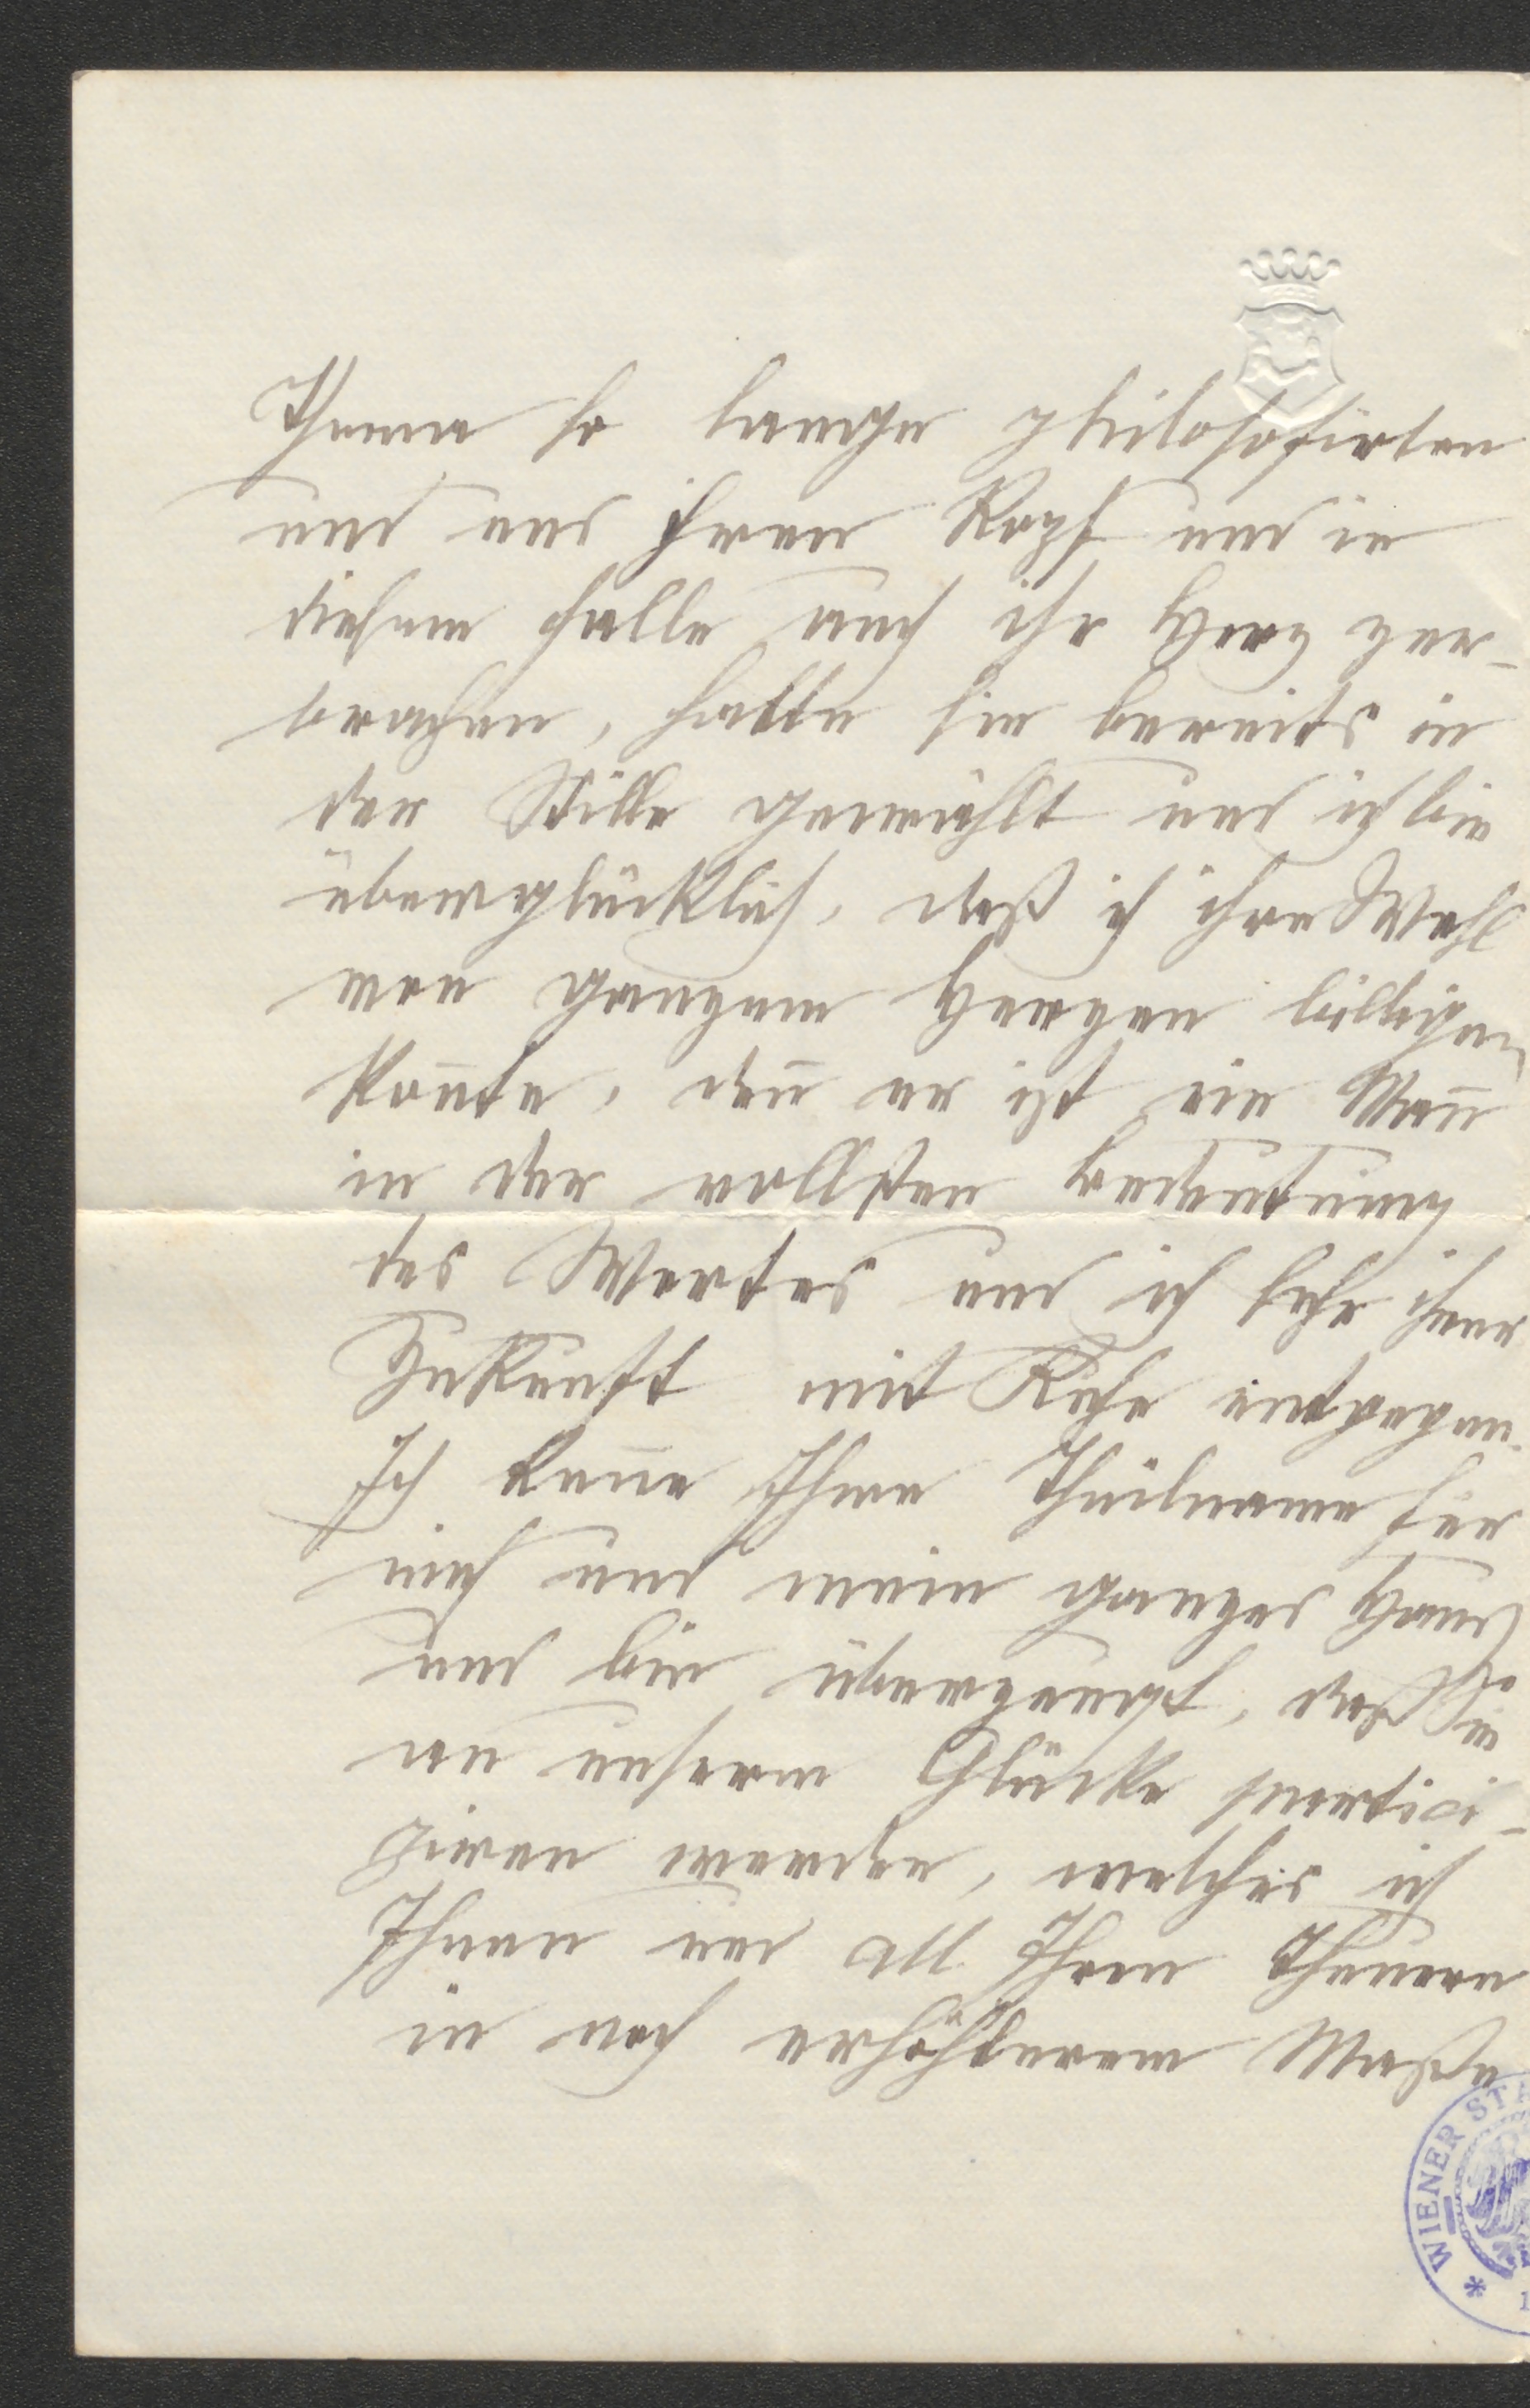 Thema so lange philosofirten
und uns ihren Kopf und in
diesem Falle auch ihr Herz zer-
brachen, hatte sie bereits in
der Stille gewählt und ich bin
überglücklich, daß ich ihre Wahl
von ganzem Herzen billigen
kon̄te, den̄ er ist ein Man̄
in der vollsten Bedeutung
des Wortes und ich sehe ihrer
Zukunft mit Ruhe entgegen.
Ich ken̄e Ihre Theilname für
mich und mein ganzes Haus
und bin überzeugt, daß Sie
an unserem Glücke partici-
piren werden, welches ich
Ihnen und all Ihren Theuern
in noch erhöhterem Maße
WIENER